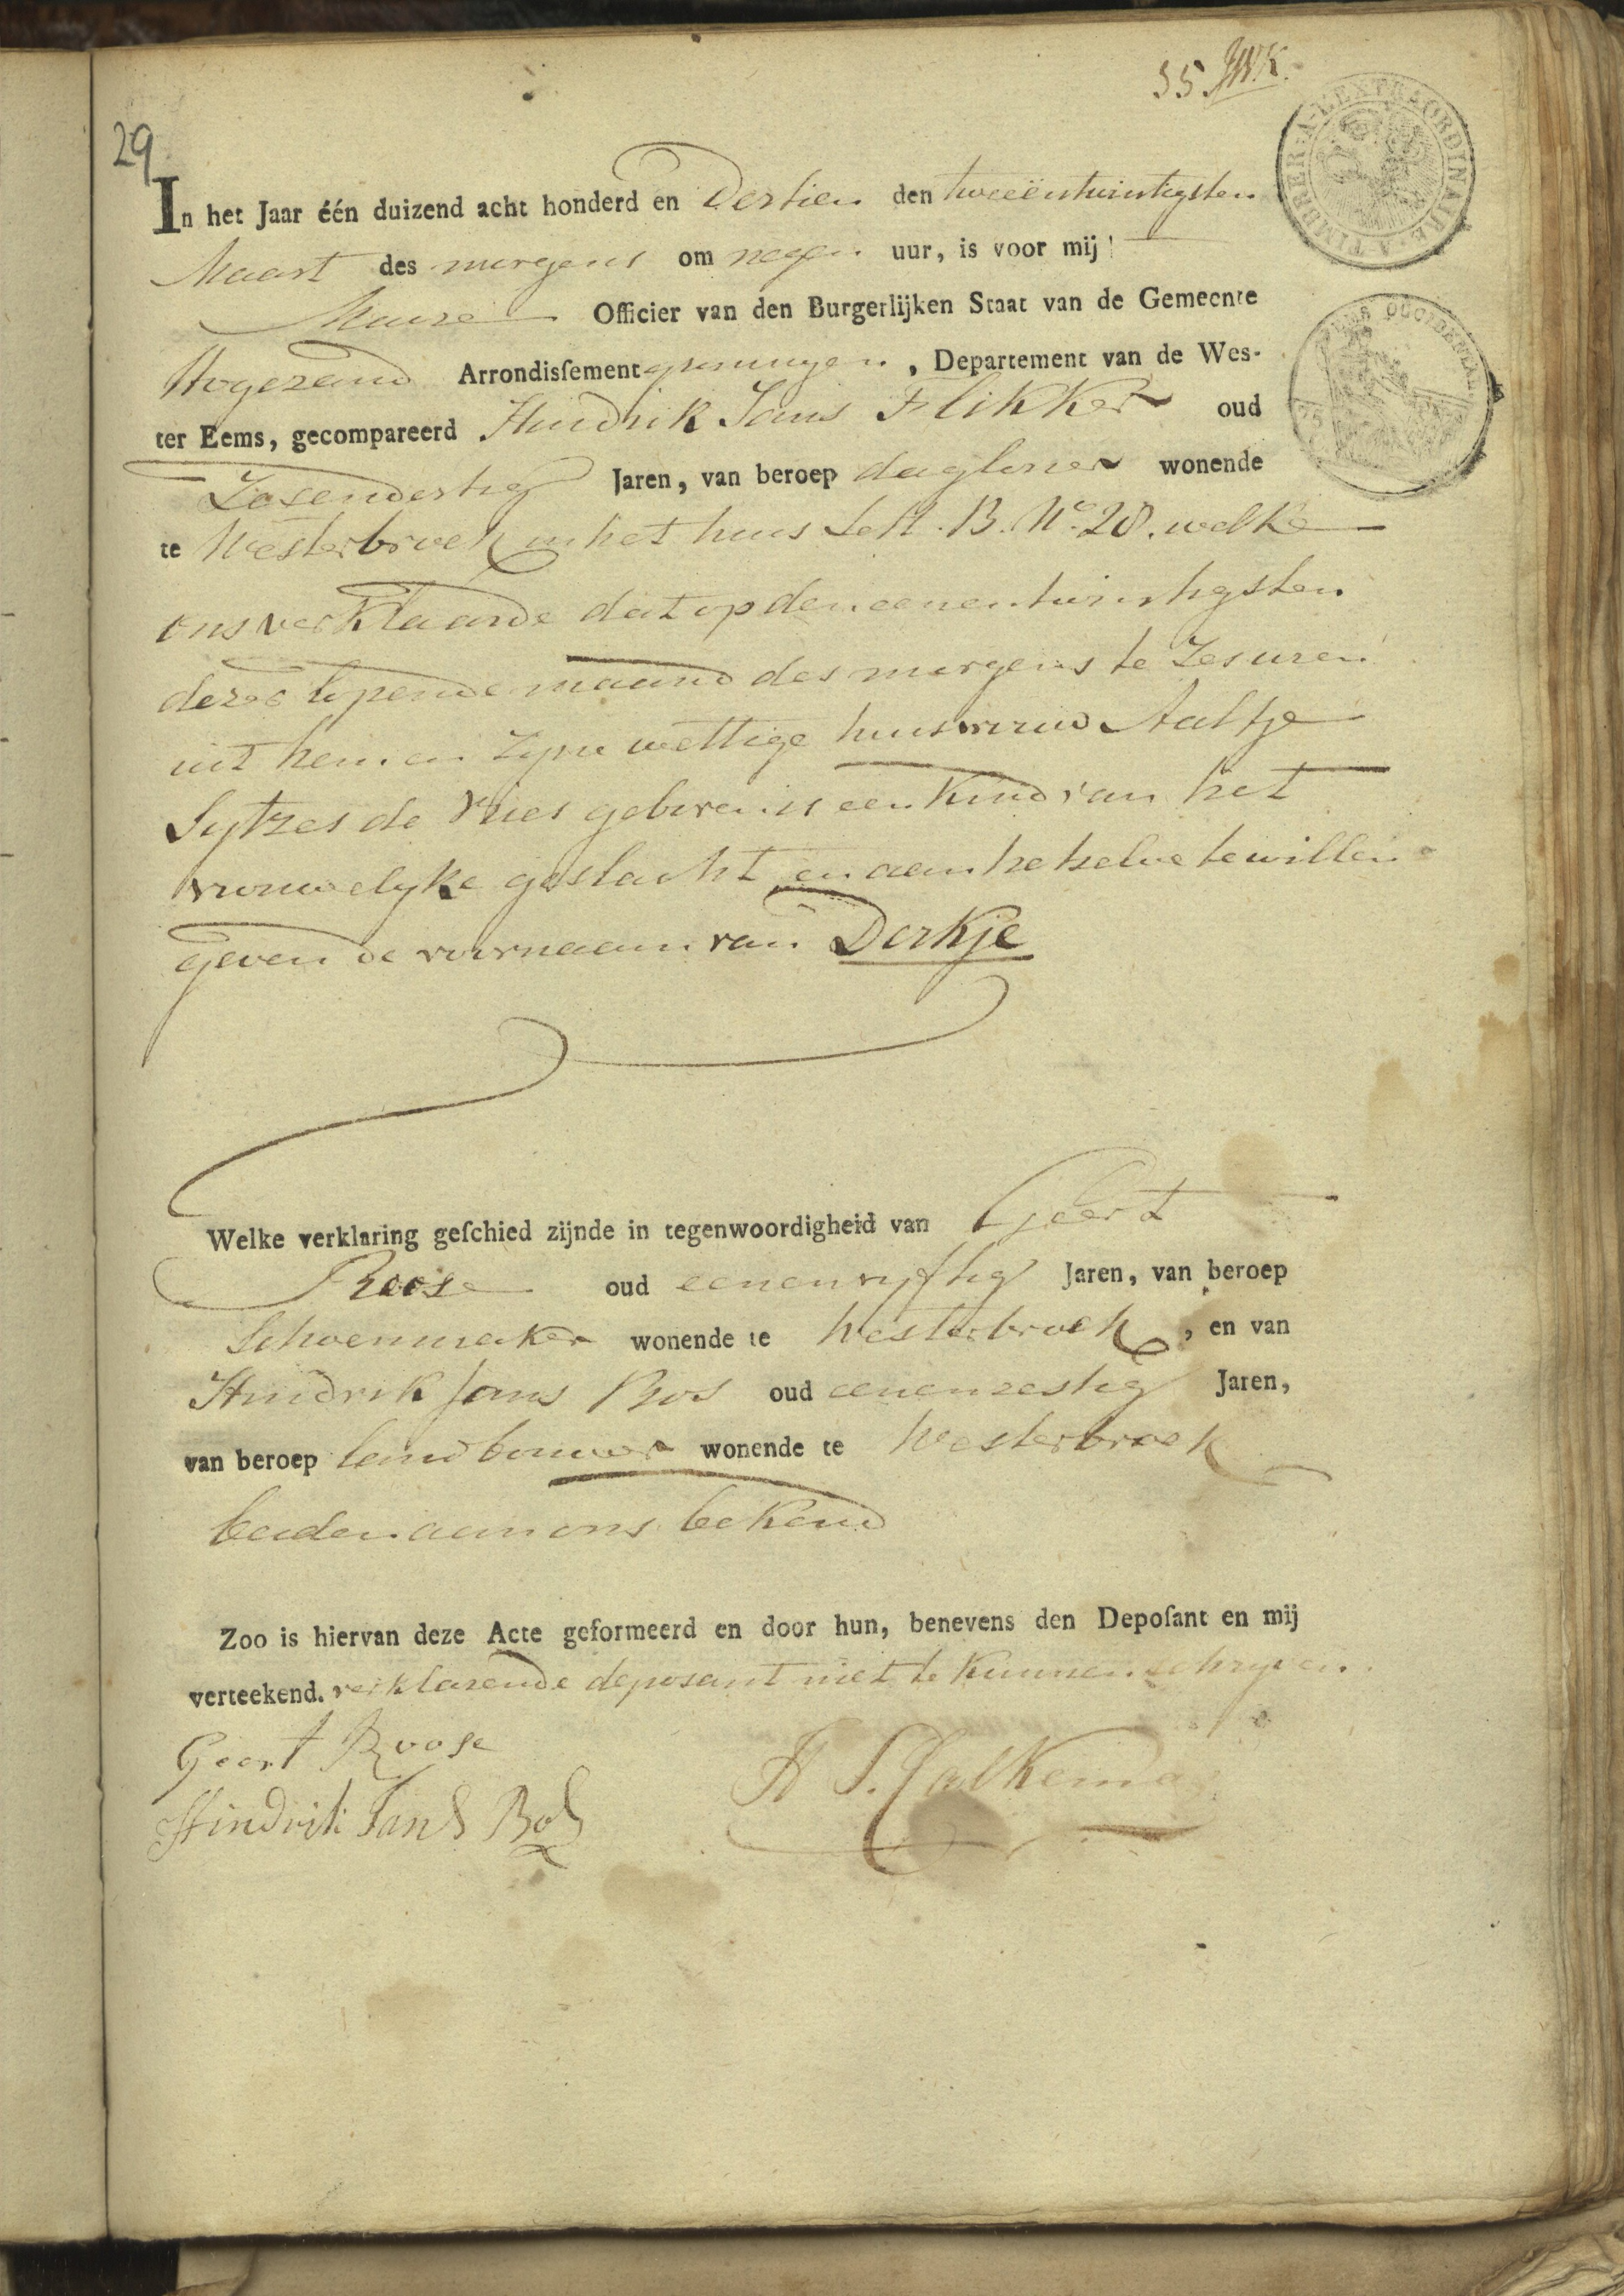 55 JWK.
TIMBRE A L'EXTRAORDINAIRE
29
In het Jaar één duizend acht honderd en Dertien den tweeëntwintigsten
Maart des morgens om negen uur, is voor mij
Maire Officier van den Burgerlijken Staat van de Gemeente
EEMS OCCIDENTAL
Hogezand Arrondisſement groningen, Departement van de Wes-
ter Eems, gecompareerd Hindrik Jans Flikker oud
Zesendertig Jaren, van beroep dagloner wonende
te Westerbroek in het huis Lett. B. No. 28. welke
ons verklaarde dat op den eenentwintigsten
dezer lopende maand des morgens te Zes uren
uit hem en zyne wettige huisvrouw Aaltje
Sytzes de Vries geboren is een Kind van het
vrouwelyke geslacht, en aan hetselve te willen
geven de voornaam van Derkje
Welke verklaring geſchied zijnde in tegenwoordigheid van Geert
Roose oud eenenvyftig Jaren, van beroep
Schoenmaker wonende te Westerbroek, en van
Hindrik Jans Bos oud eenenzestig Jaren,
van beroep landbouwer wonende te Westerbroek
beiden aan ons bekend
Zoo is hiervan deze Acte geformeerd en door hun, benevens den Depoſant en mij
verteekend. verklarende deposant niet te kunnen schryven.
Geert Roose
Hindrik Jans Bos
H S. Calkema